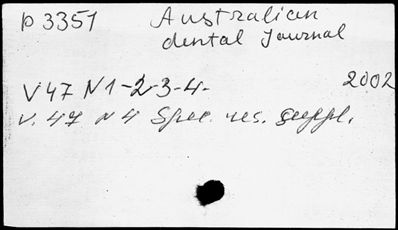 p 3351 Australian
dental Journal
V 47 N 1-2-3-4- 2002
v. 47 N 4 Spec. res. suppl.